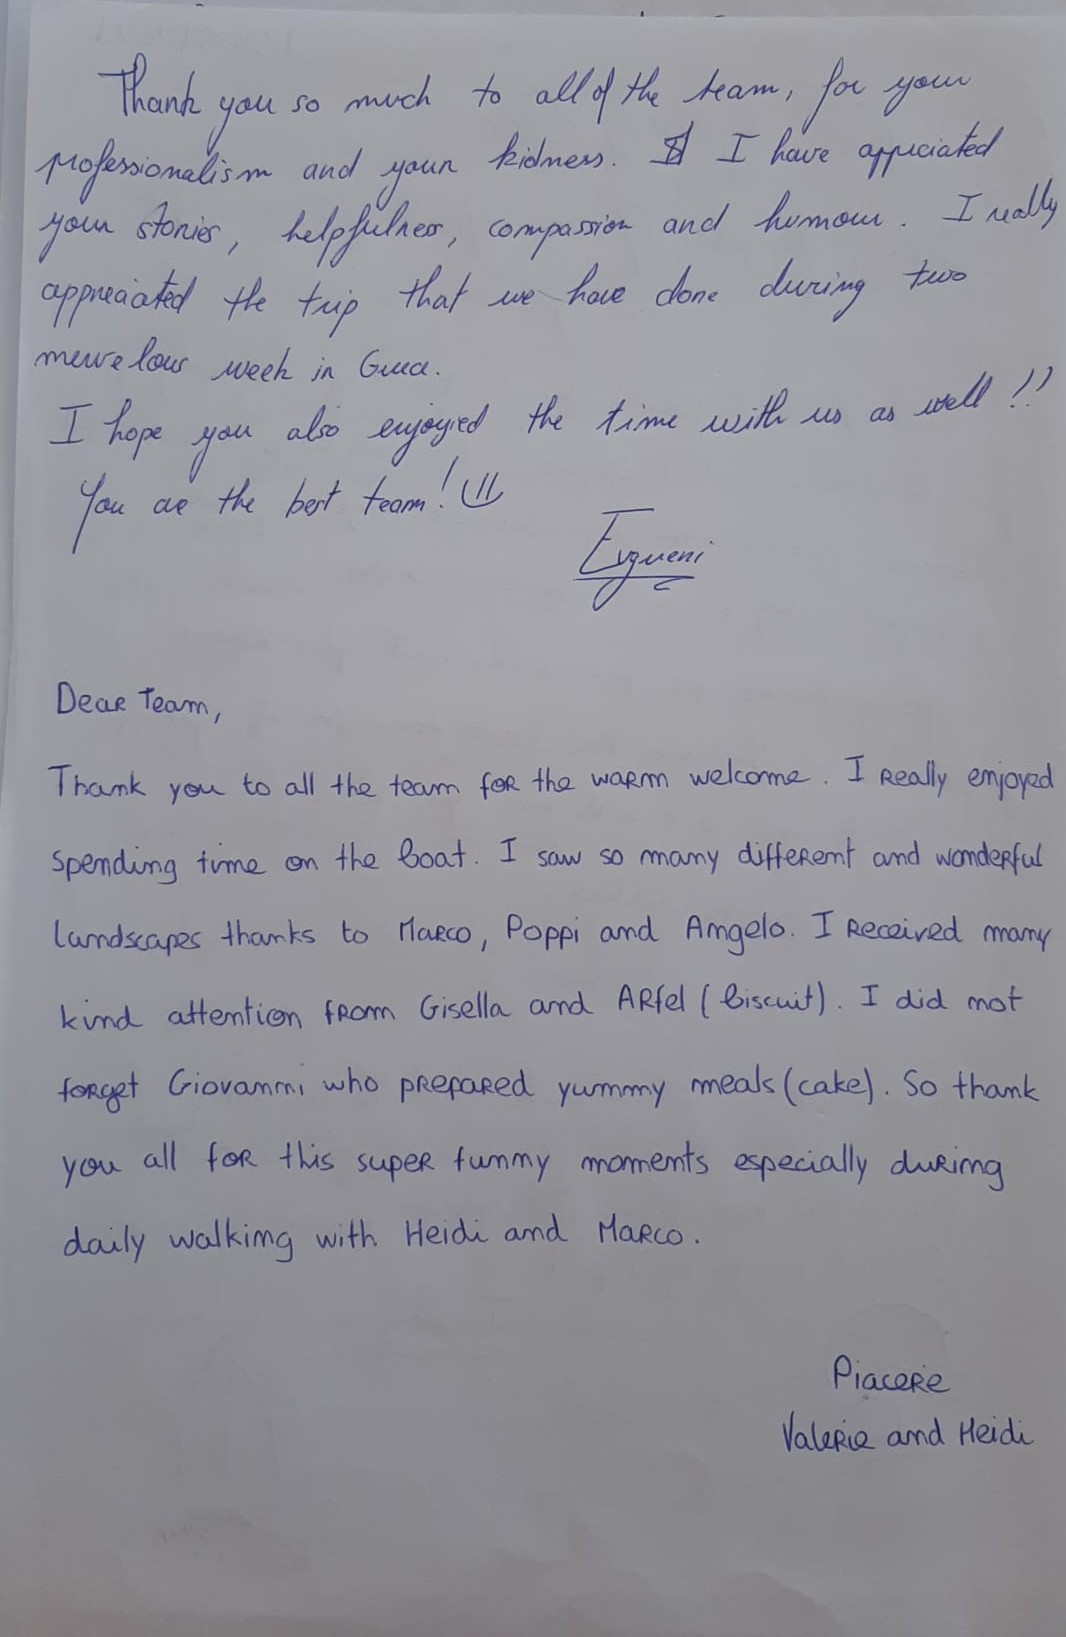 Thank you so much to all of the team, for your
professionalism and your kidness. I have appriciated
your stories, helpfulness, compassion and humour. I really
appreciated the trip that we have done during two
mervelous week in
I hope you also enjoyied the time with us as well !!
You are the best team!
Evgueni
Dear Team,
Thank you to all the team for the warm welcome. I really enjoyed
spending time on the boat. I saw so many different and wonderful
landscapes thanks to Marco, Poppi and Angelo. I received many
kind attention from Gisella and Arfel (biscuit). I did not
forget Giovanni who prepared yummy meals (cake). So thank
you all for this super funny moments especially during
daily walking with Heidi and Marco.
Piacere
Valerie and Heidi